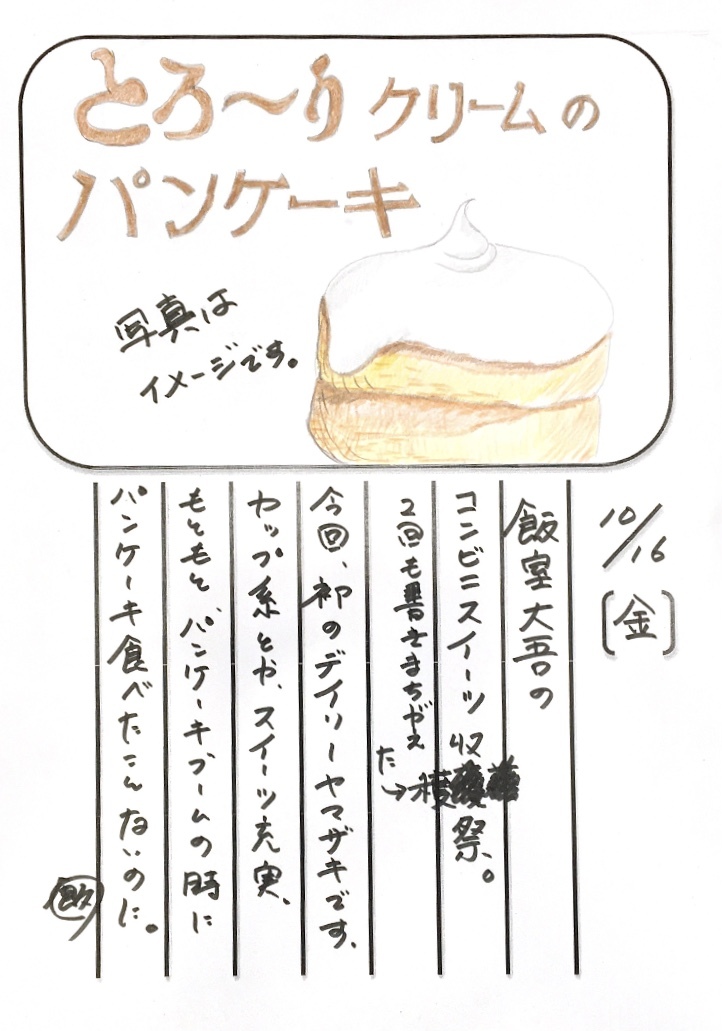 とろ〜りクリームの
パンケーキ
写真は
イメージです。
10/16
[金]
飯室大吾の
コンビニスイーツ収穫祭。
2回も書きまちがえ
た→
今回、初のデイリーヤマザキです。
カップ系とか、スイーツ充実、
もともと、パンケーキブームの時に
パンケーキ食べたことないのに。
飯